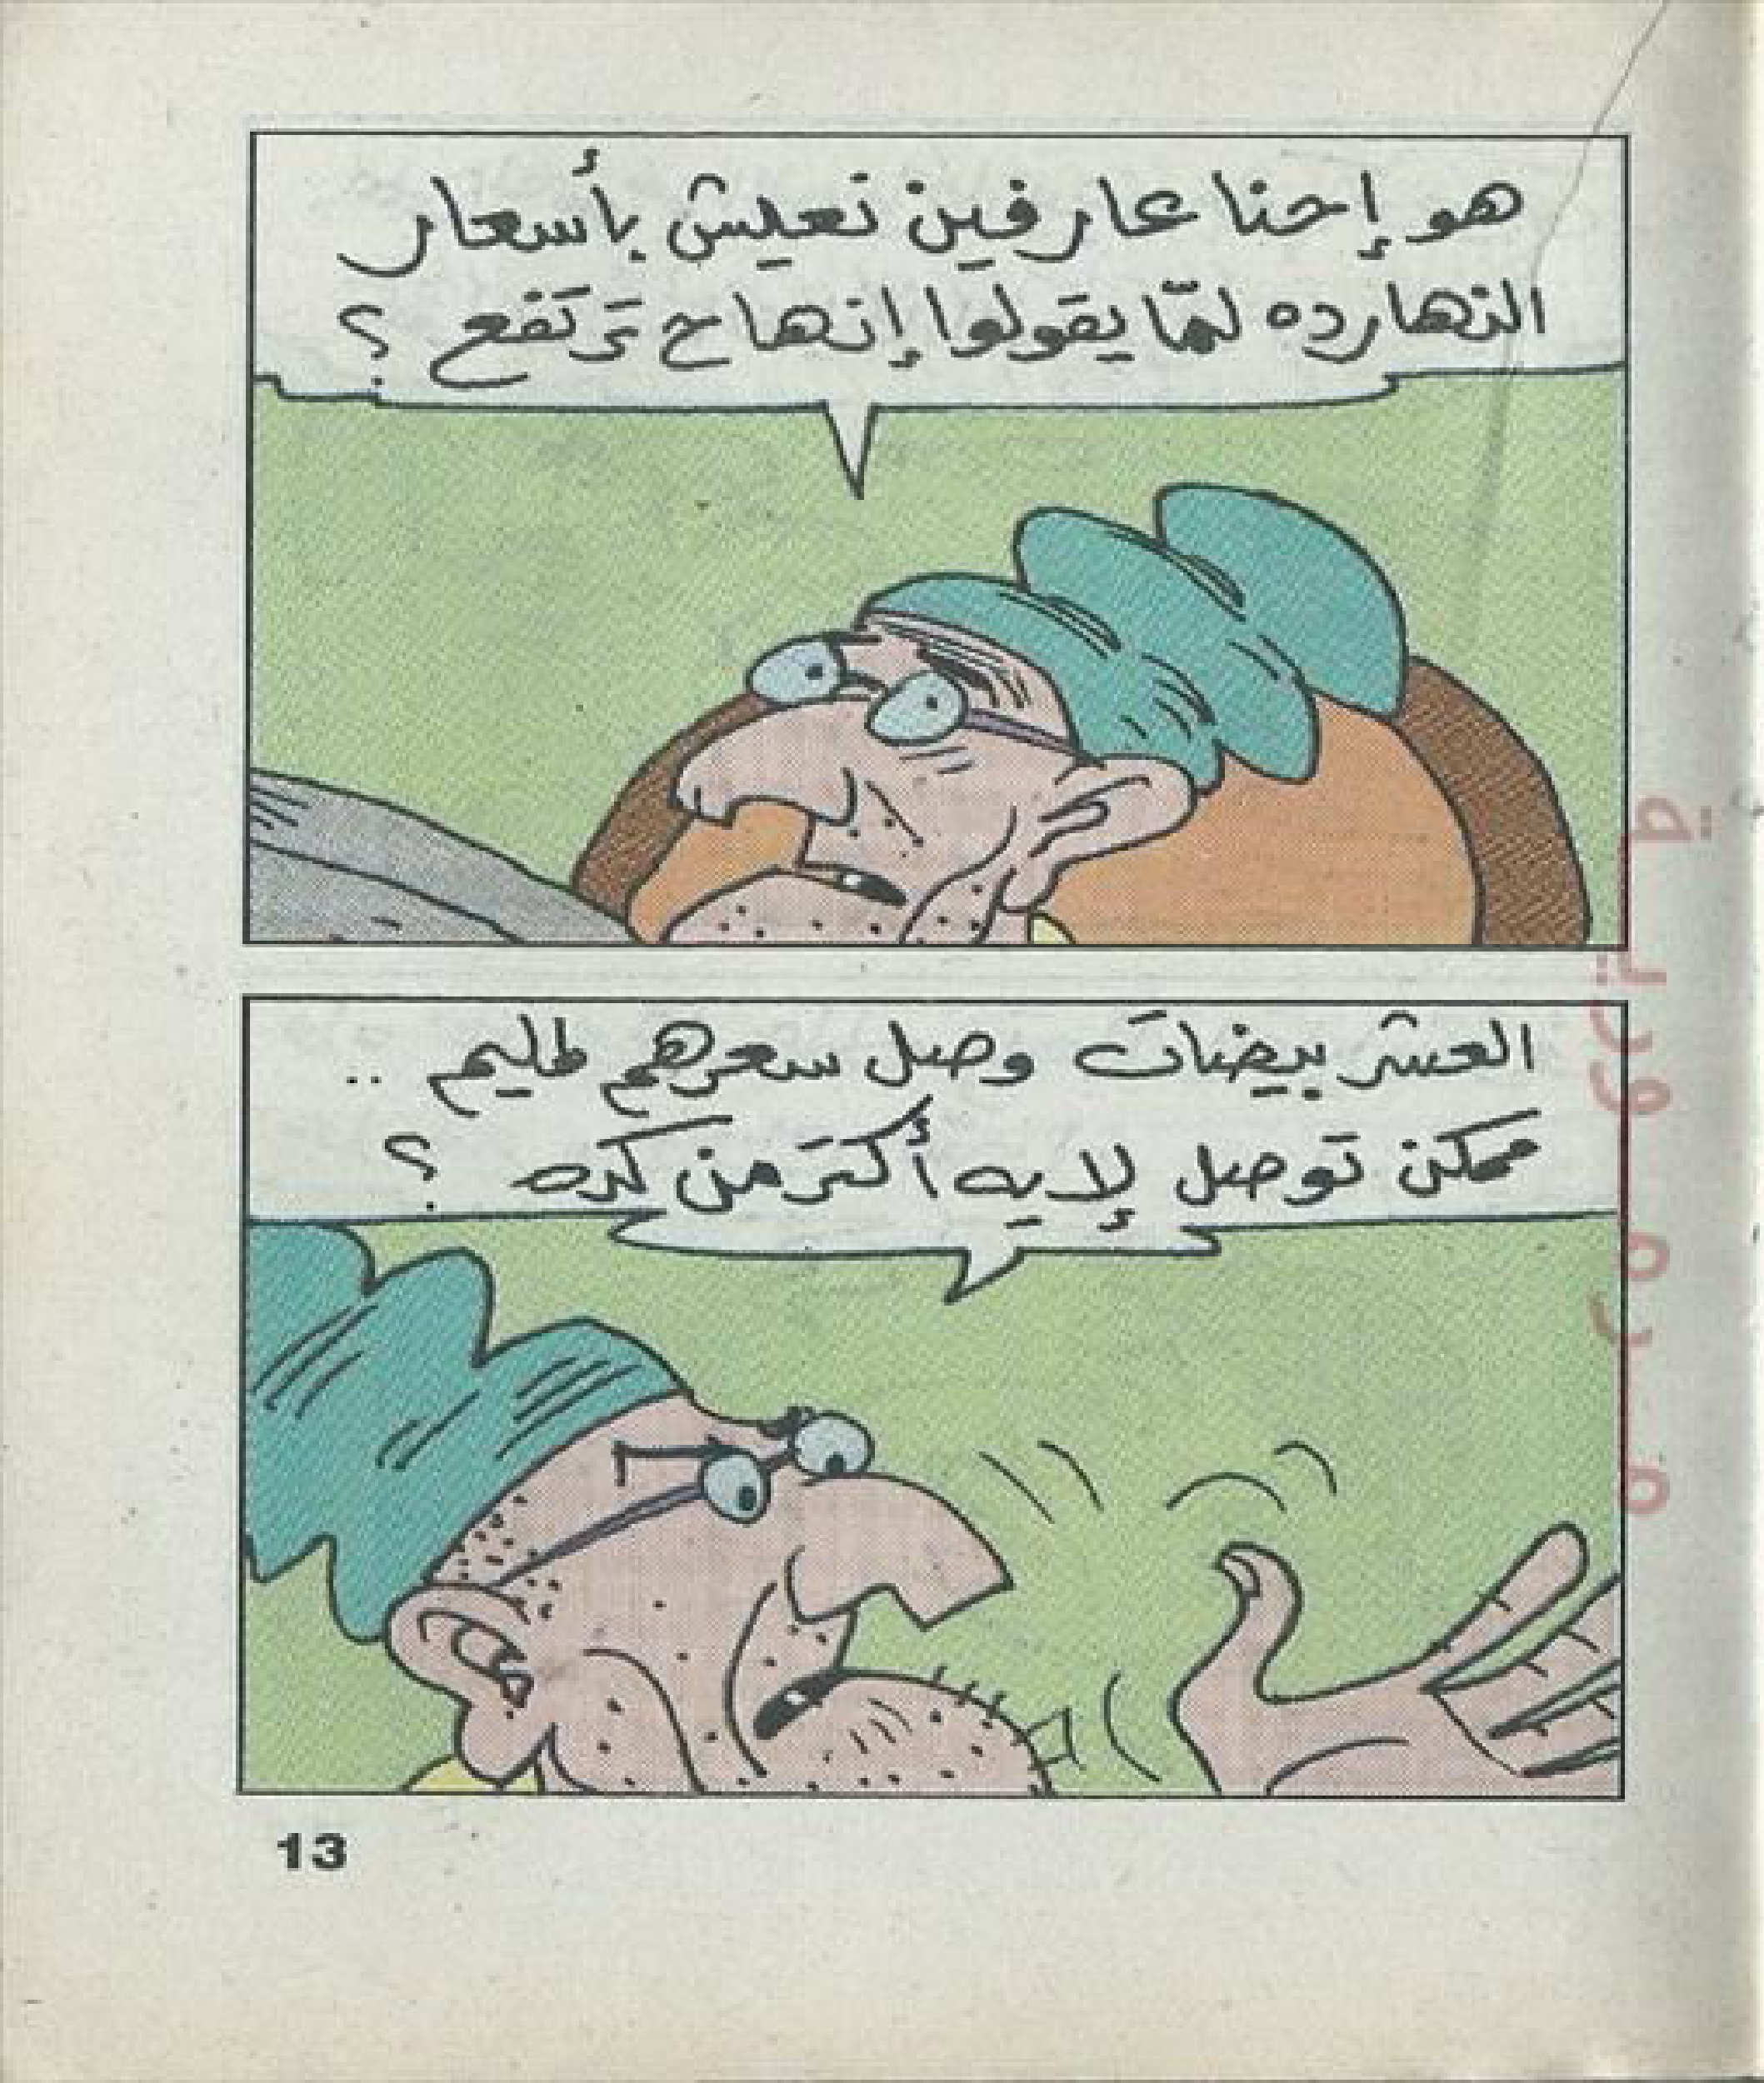 هو إحنا عارفين نعيش بأسعار
النهارده لمّا يقولوا إنها ح ترتفع ؟
العشر بيضات وصل سعرهم طليم ..
ممكن توصل لإيه أكتر من كده ؟
13